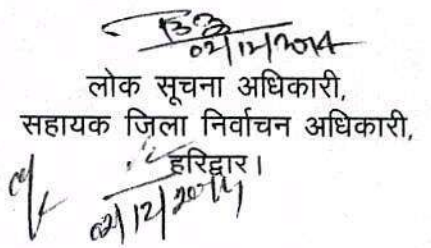 02/12/2014
लोक सूचना अधिकारी,
सहायक जिला निर्वाचन अधिकारी,
हरिद्वार।
02/12/2014